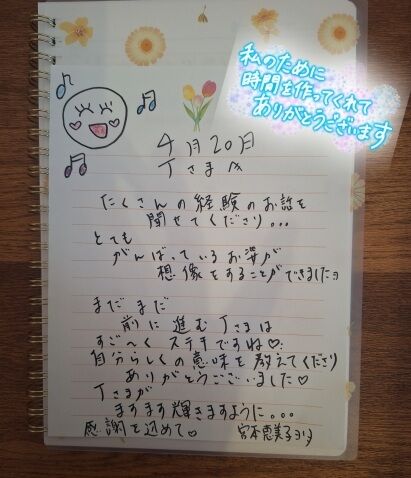 私のために
時間を作ってくれて
ありがとうございます
4月20日
Tさま
たくさんの経験のお話を
聞せてくださり...
とても
がんばっているお姿が
想像をすることができましたヨ
まだまだ
前に進むTさまは
すご〜くステキですね♡
自分らしくの意味を教えてくださり
ありがとうございました♡
Tさまが
ますます輝きますように...
感謝を込めて♡ 宮本恵美子ヨリ